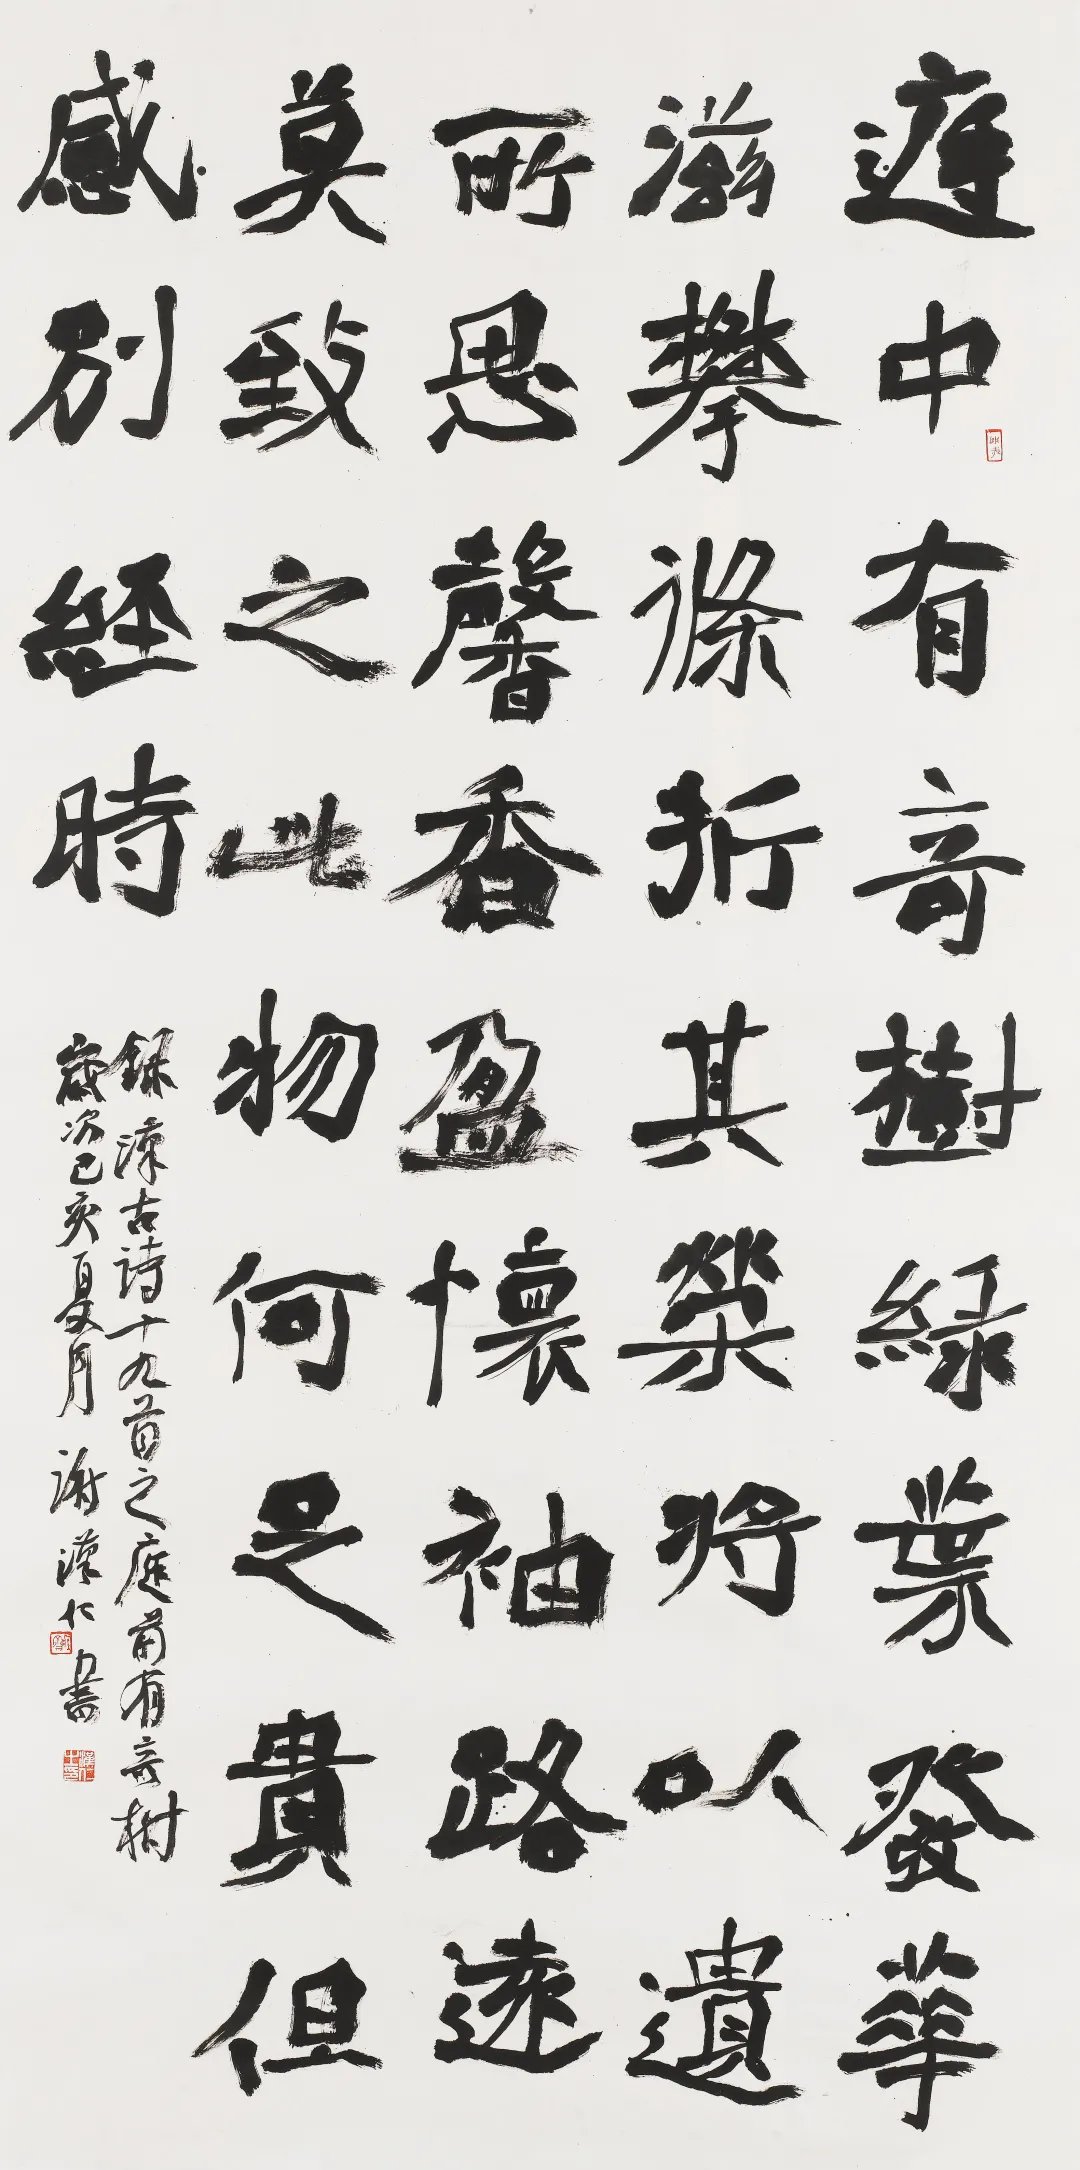 庭中有奇樹綠葉發華
滋攀條折其榮將以遺
所思馨香盈懷袖路遠
莫致之此物何足貴但
感別經時
錄漢古詩十九首之庭前有奇樹
歲次己亥夏月謝漢仁書